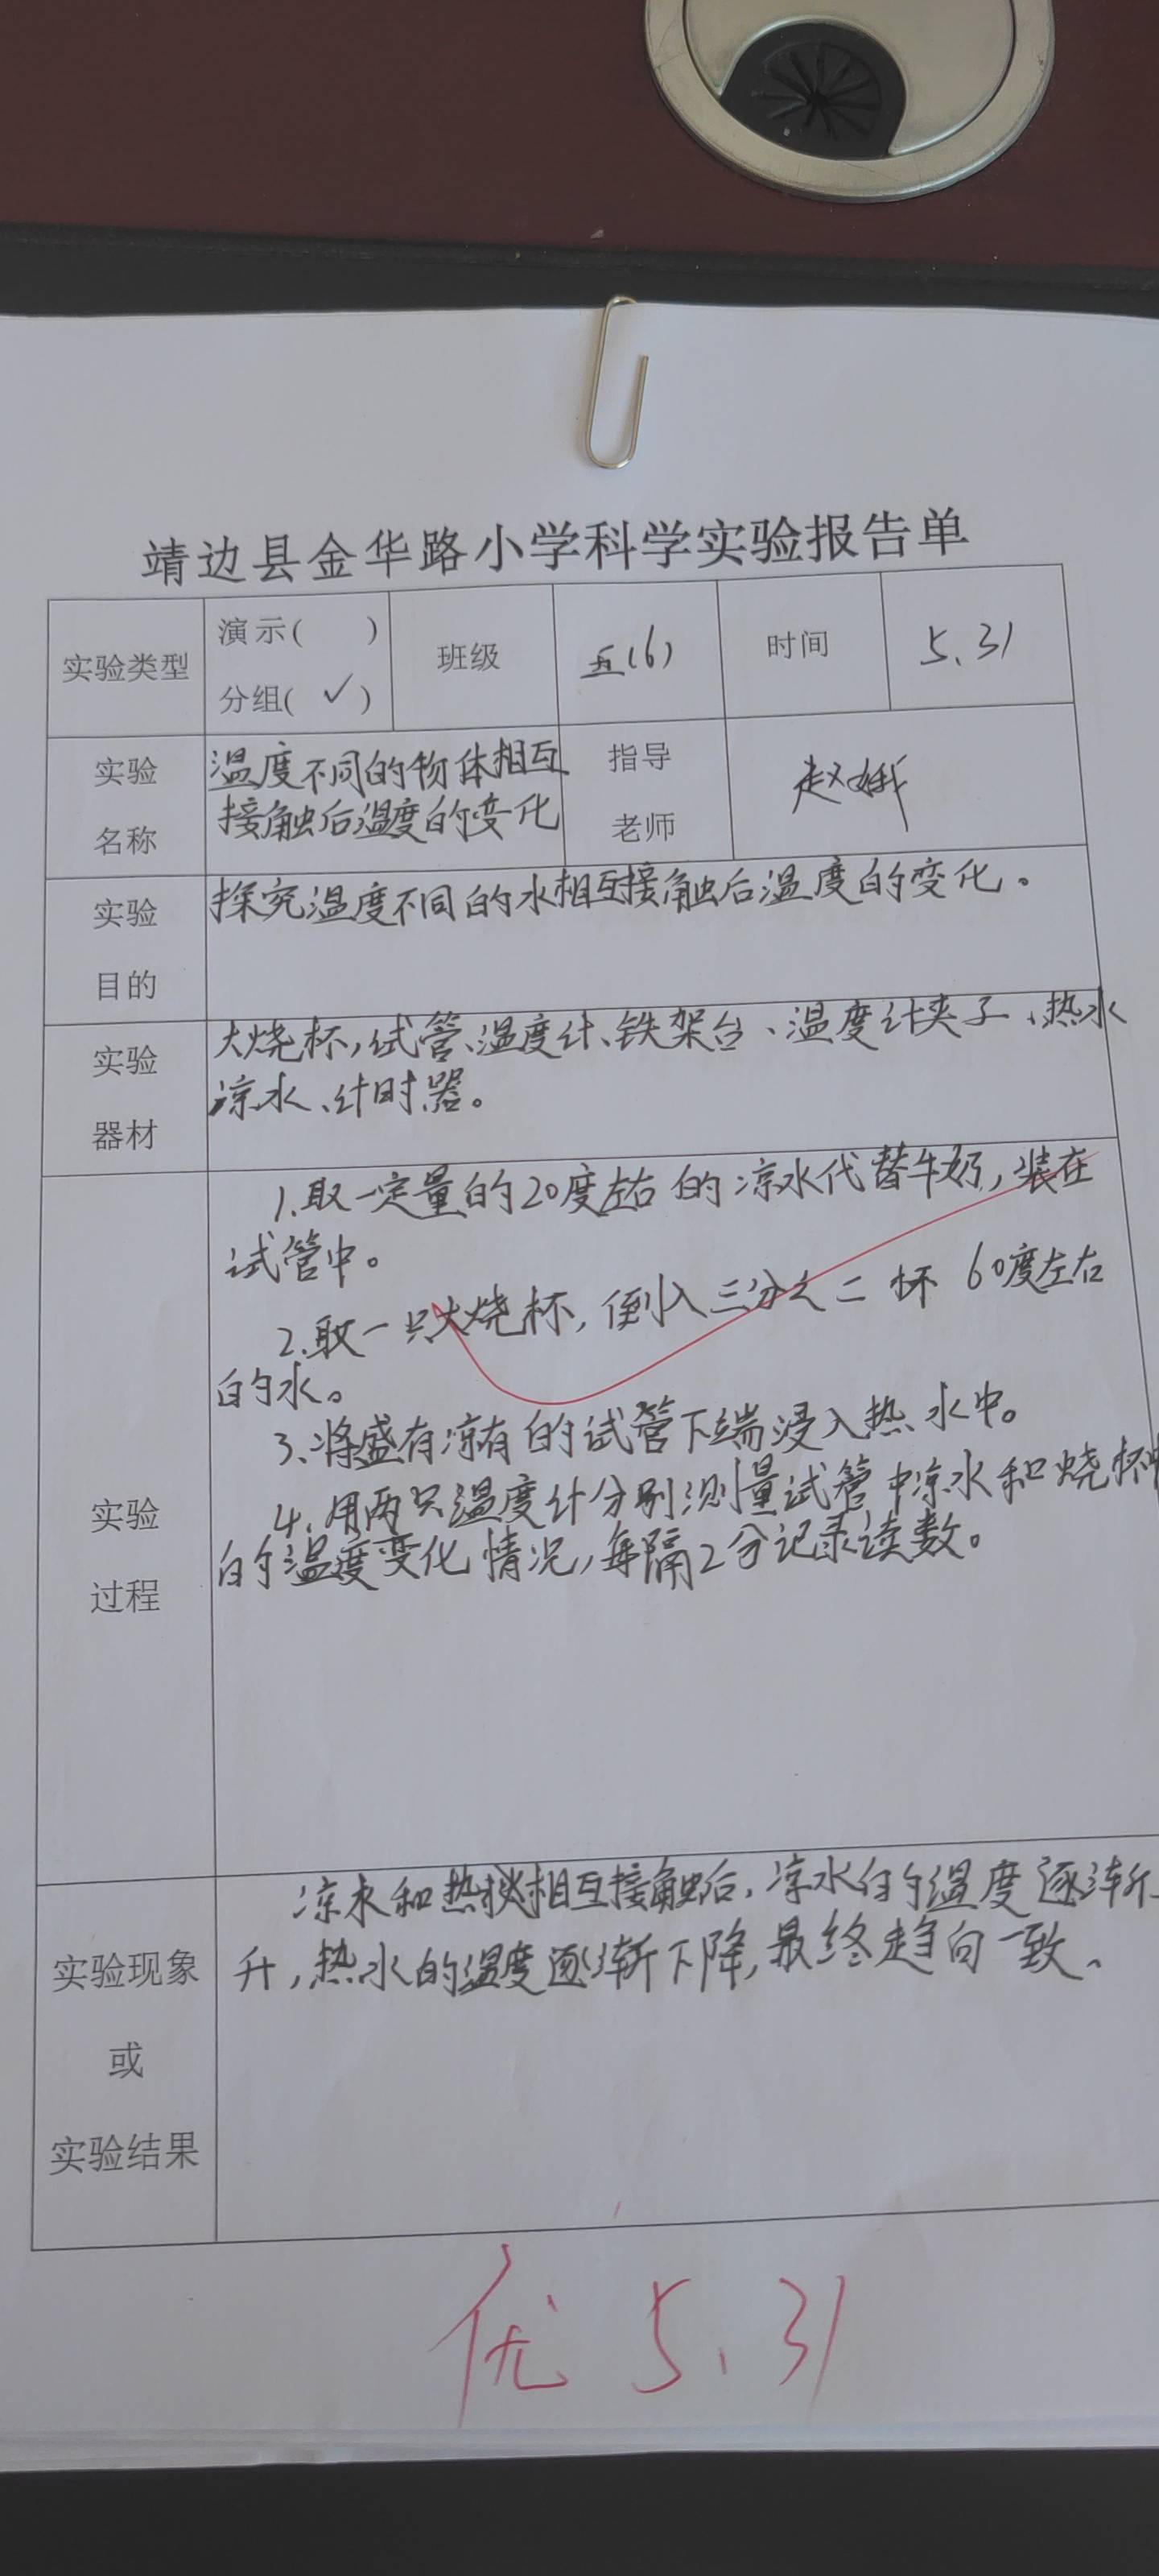 靖边县金华路小学科学实验报告单
实验类型 演示( ) 分组( ✓ ) 班级 五(6) 时间 5.31
实验名称 温度不同的物体相互
接触后温度的变化 指导老师 赵娥
实验目的 探究温度不同的水相互接触后温度的变化。
实验器材 大烧杯,试管、温度计、铁架台、温度计夹子、热水
凉水、计时器。
实验过程
1.取一定量的20度左右的凉水代替牛奶,装在
试管中。
2.取一只大烧杯,倒入三分之二杯 60度左右
的水。
3、将盛有凉有的试管下端浸入热水中。
4、用两只温度计分别测量试管中凉水和烧杯中
的温度变化情况,每隔2分记录读数。
实验现象
或
实验结果
凉水和热相互接触后,凉水的温度逐渐
升,热水的温度逐渐下降,最终趋向一致、
优 5、31